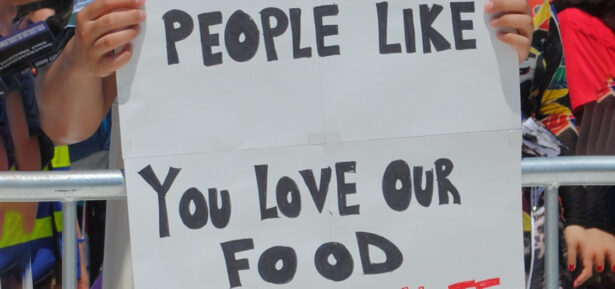 PEOPLE LIKE
YOU LOVE OUR
FOOD